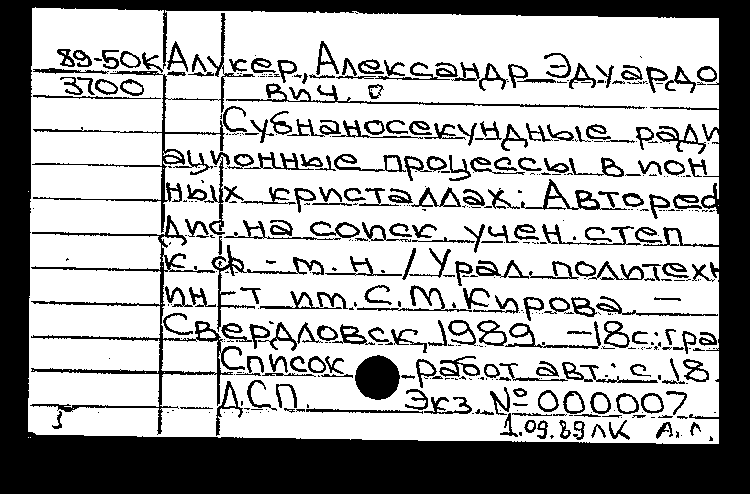 89-50к Алукер, Александр Эдуардо
3700 вич.
Субнаносекундные ради
ационные процессы в ион
ных кристаллах: Автореф
дис. на соиск. учен. степ
к. ф. - т. н. / Урал. политехн
ин-т им. С. М. Кирова. —
Свердловск, 1989. - 18 с.: гра
Список работ авт.: с. 18.
ДСП. Экз. № 000007.
1.09.89 лк А. Л.